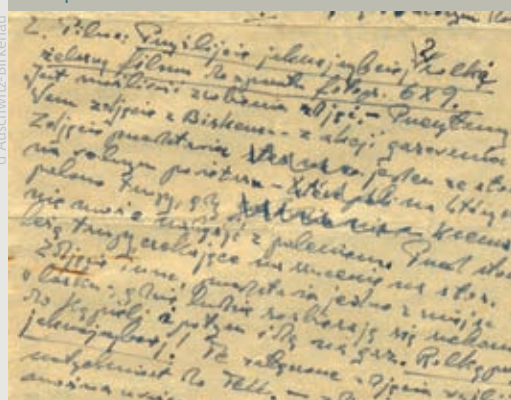 2. Pilne. Przyślijcie jaknajszybciej 2 rolki
żelazne filmu do aparatu fotogr. 6x9.
Jest możliwość zrobienia zdjęć. – Przesyłamy
Wam zdjęcia z Birkenau – z akcji gazowania
Zdjęcie przedstawia jeden ze stosów
na wolnym powietrzu – na których
palono trupy, gdy krema
nie mogło nadążyć z paleniem. Przed stosem
leżą trupy czekające na wrzucenie na stos.
Zdjęcie inne przedstawia jedno z miejsc
w lasku, gdzie ludzie rozbierają się rzekomo
do kąpieli a potym idą na gaz. Rolkę
jaknajszybciej! Te załączone zdjęcia
natychmiast do Tell. –